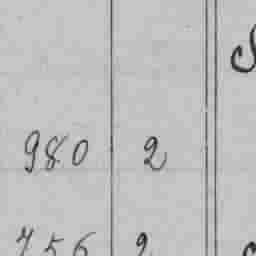 980 2
756 2